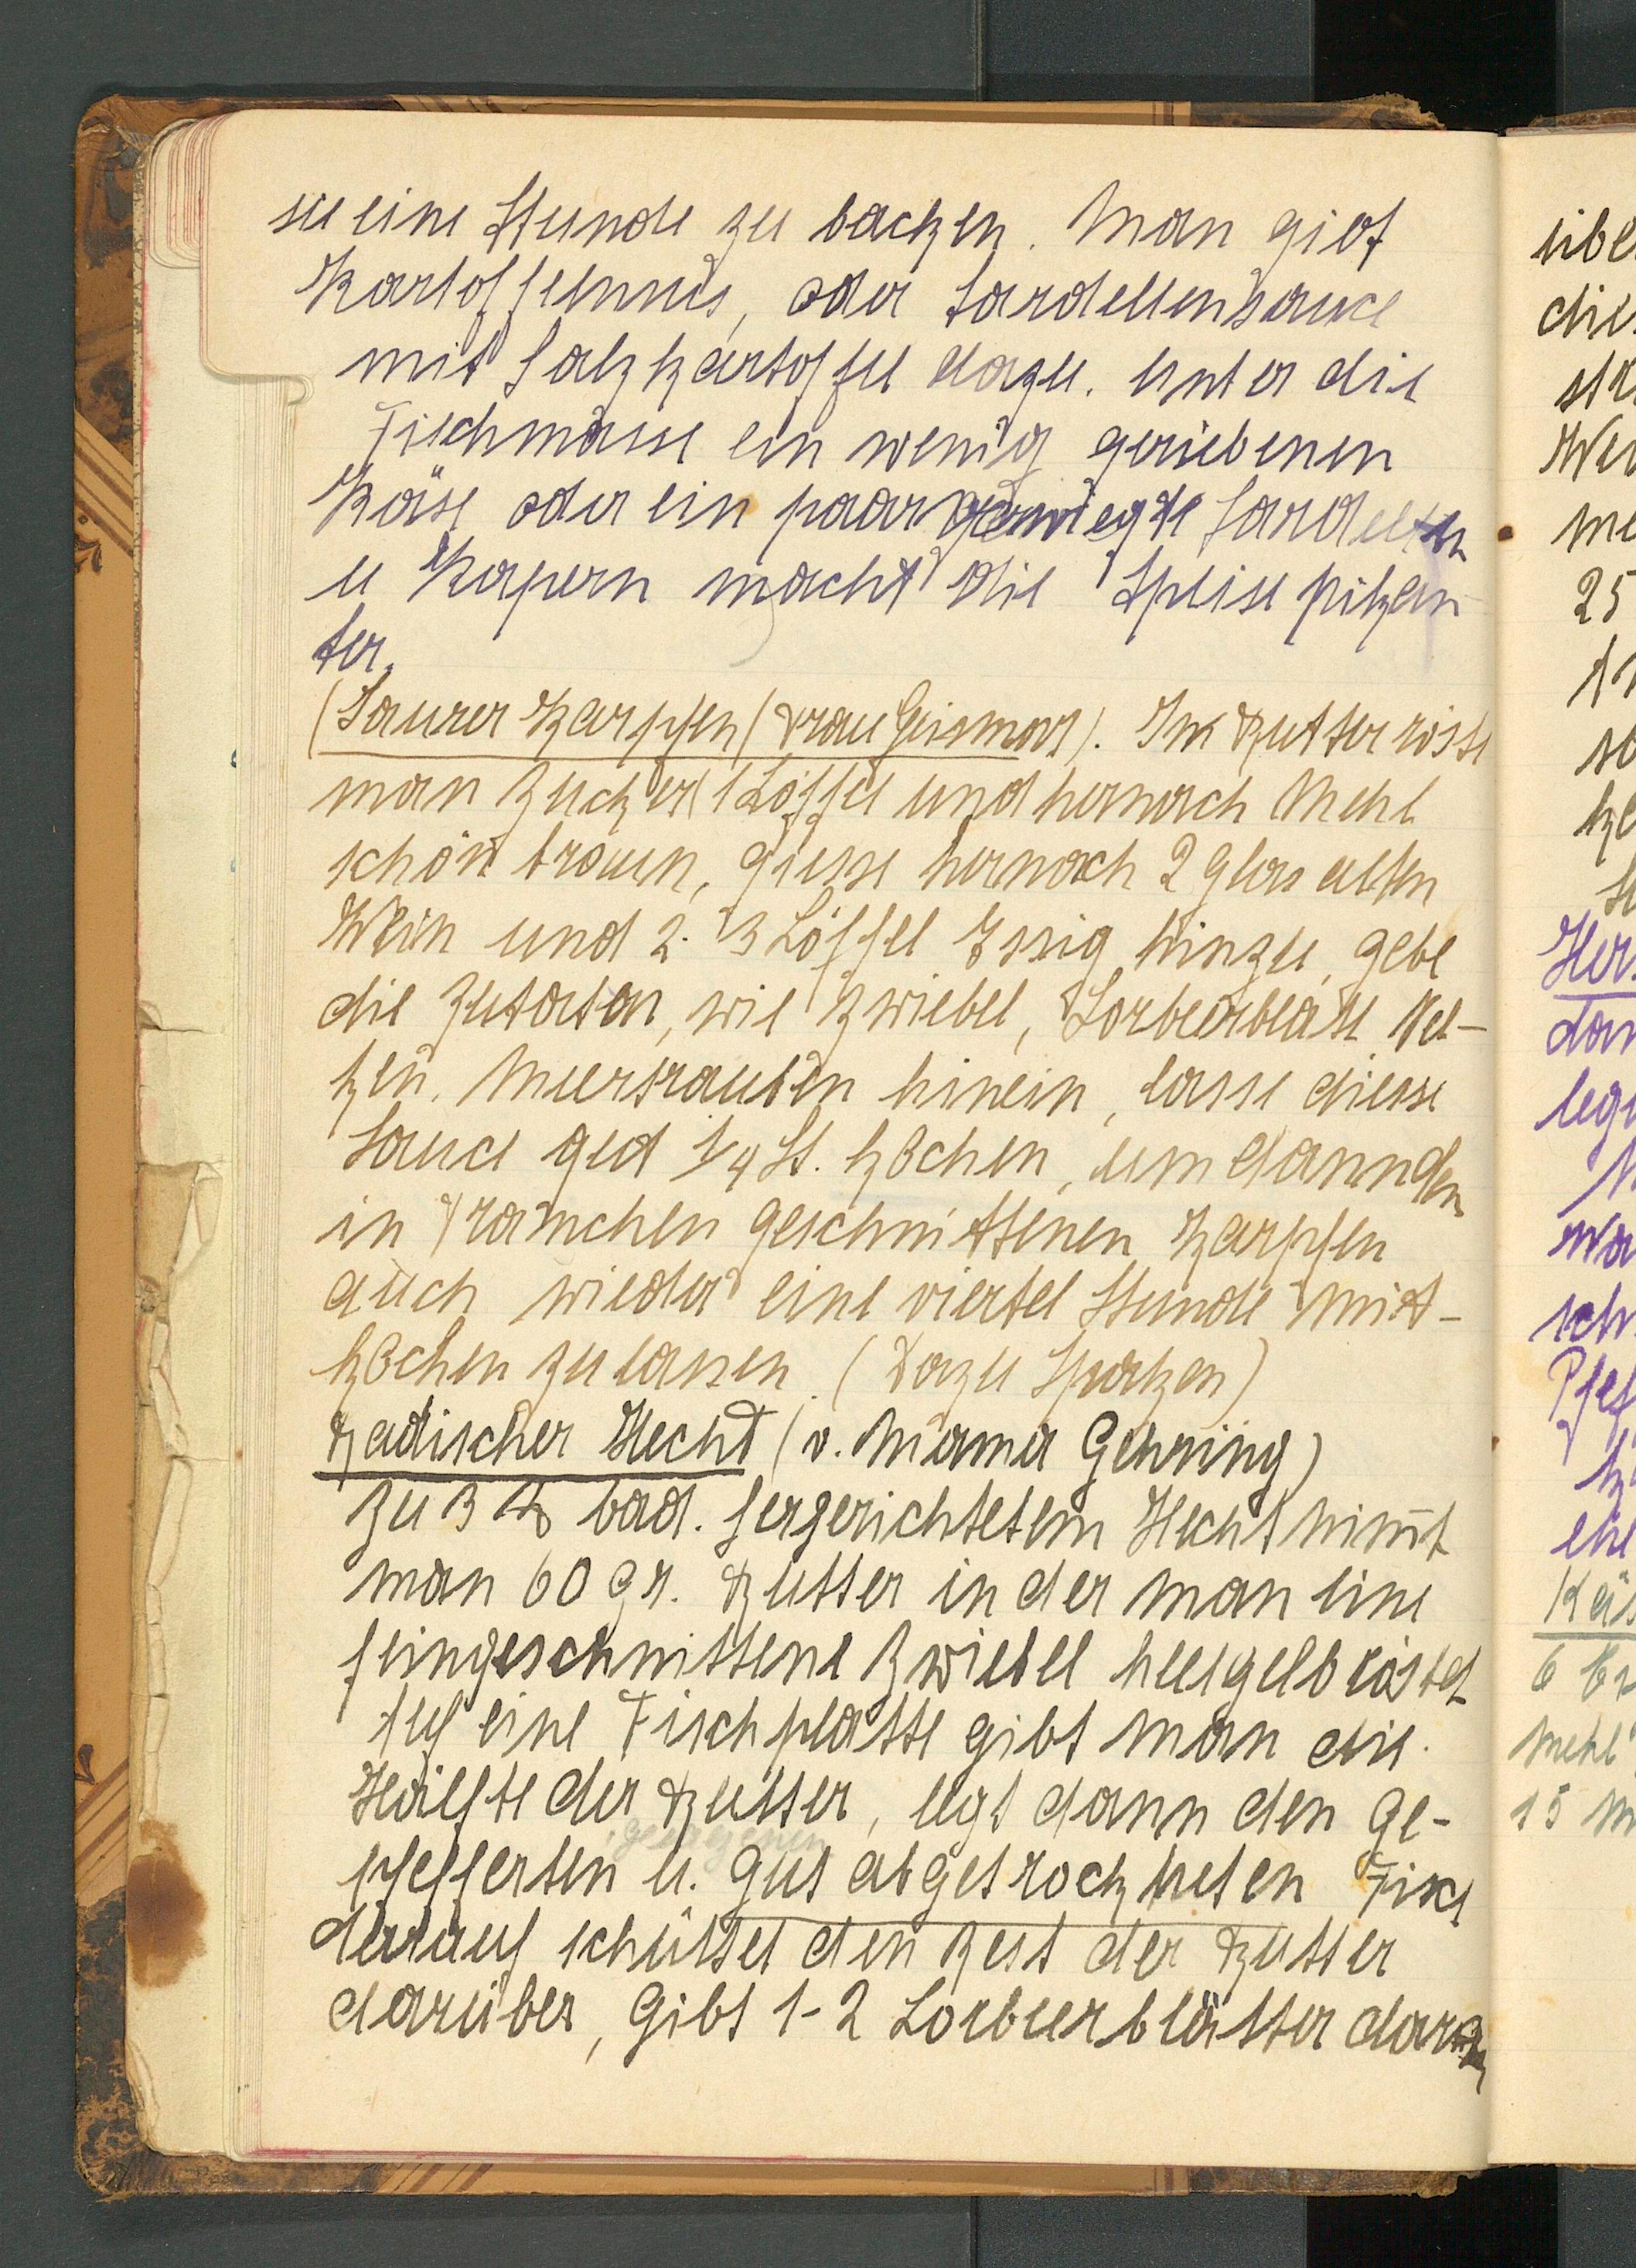 sie eine Stunde zu backen. Man gibt
Kartoffelmus, oder Sardellensauce
mit Salzkartoffel dazu. Unter die
Fischmasse ein wenig geriebenen
Käse oder ein paar gewiegte Sardellen
u Kapern macht die Speise pikan
ter.
(Saurer Karpfen (Frau Geismar). In Butter röste
man Zucker 1 Löffel und hernach Mehl
schön braun, giesse hernach 2 Glas alten
Wein und 2-3 Löffel Essig hinzu, gebe
die Zutaten, wie Zwiebel, Lorbeerblätt Nel-
ken, Meertrauben hinein, lasse diese
Sauce gut 1/4 St. kochen, um dann den
in Tramchen geschnittenen Karpfen
auch wieder eine viertel Stunde mit-
kochen zu lassen. (Dazu Spatzen)
Badischer Hecht (v. Mama Gehring)
Zu 3 ℔ bad. hergerichtetem Hecht nim̅t
man 60 gr. Butter in der man eine
feingeschnittene Zwiebel hellgelb röstet
Auf eine Fischplatte gibt man die
Hälfte der Butter, legt dann den ge-
gesalzenen
pfefferten u. gut abgetrockneten Fisch
darauf schüttet den Rest der Butter
darüber, gibt 1-2 Lorbeerblätter daran
übe
die
25
Her
dan
leg
wa
sch
Pfef
ehe
Käs
6
Mehl
15 M